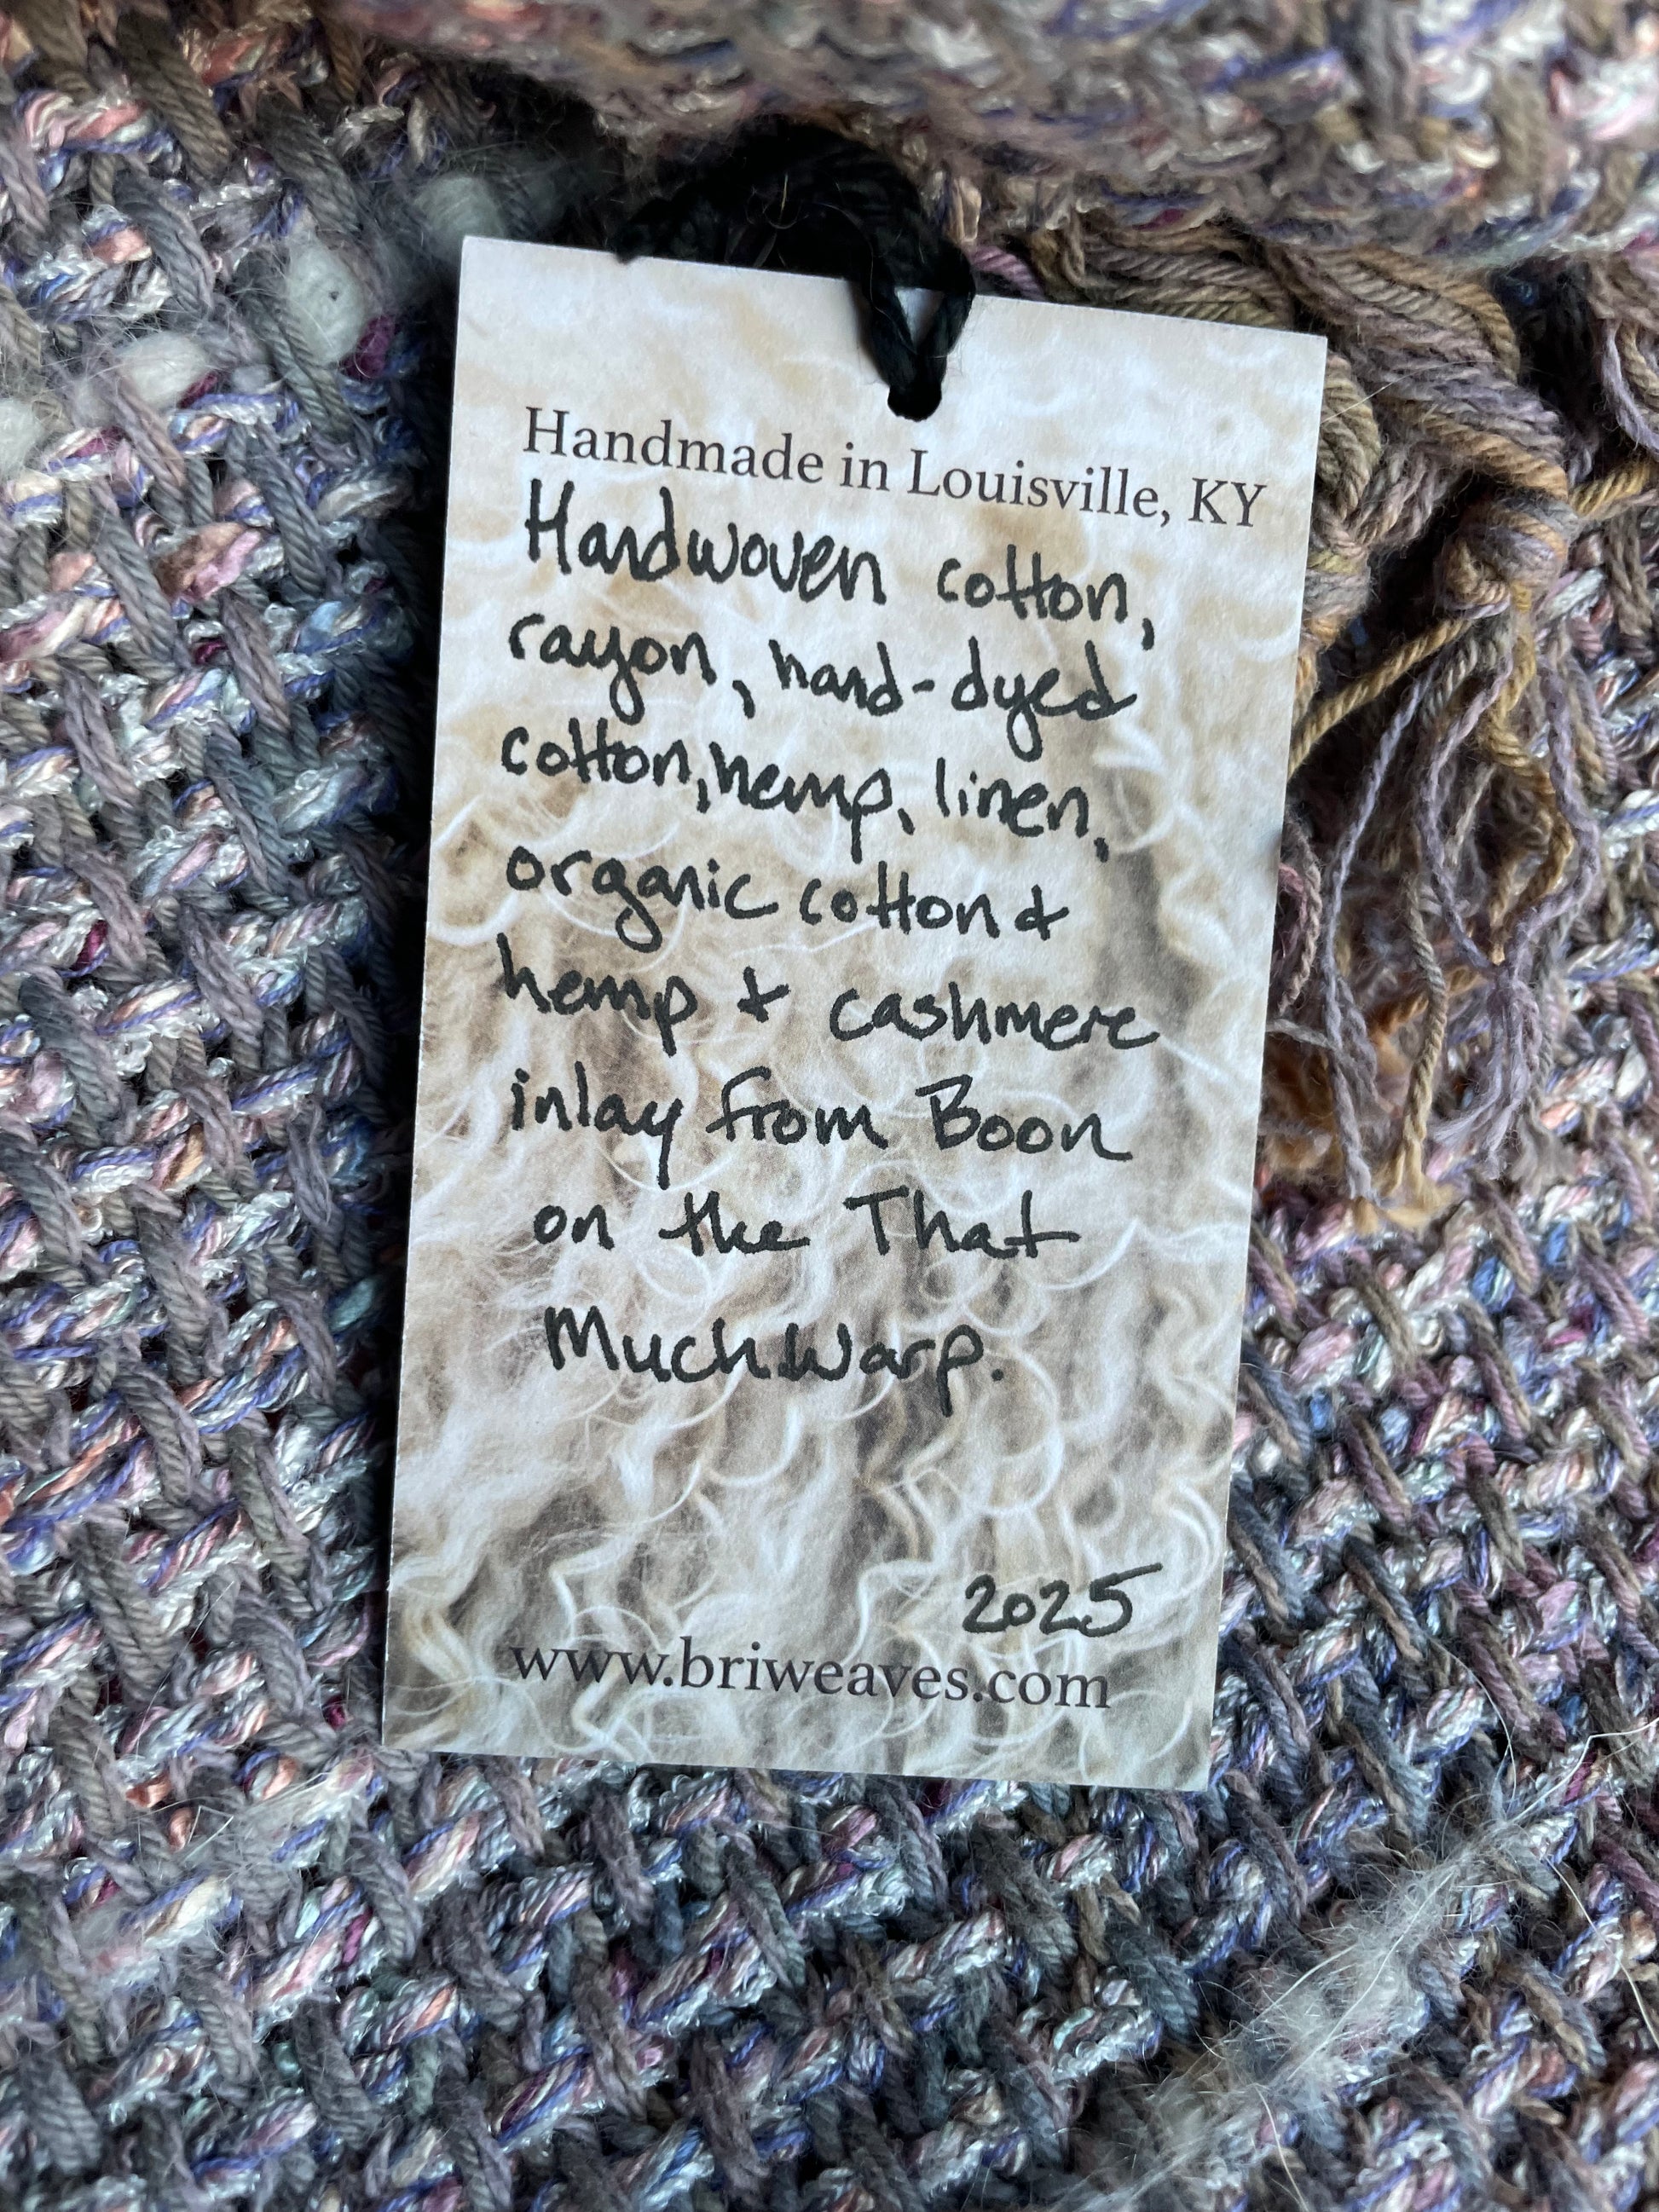 Handmade in Louisville, KY
Handwoven cotton,
rayon, hand-dyed
cotton, hemp, linen,
organic cotton &
hemp & cashmere
inlay from Boon
on the That
Much Warp.
2025
www.briweaves.com